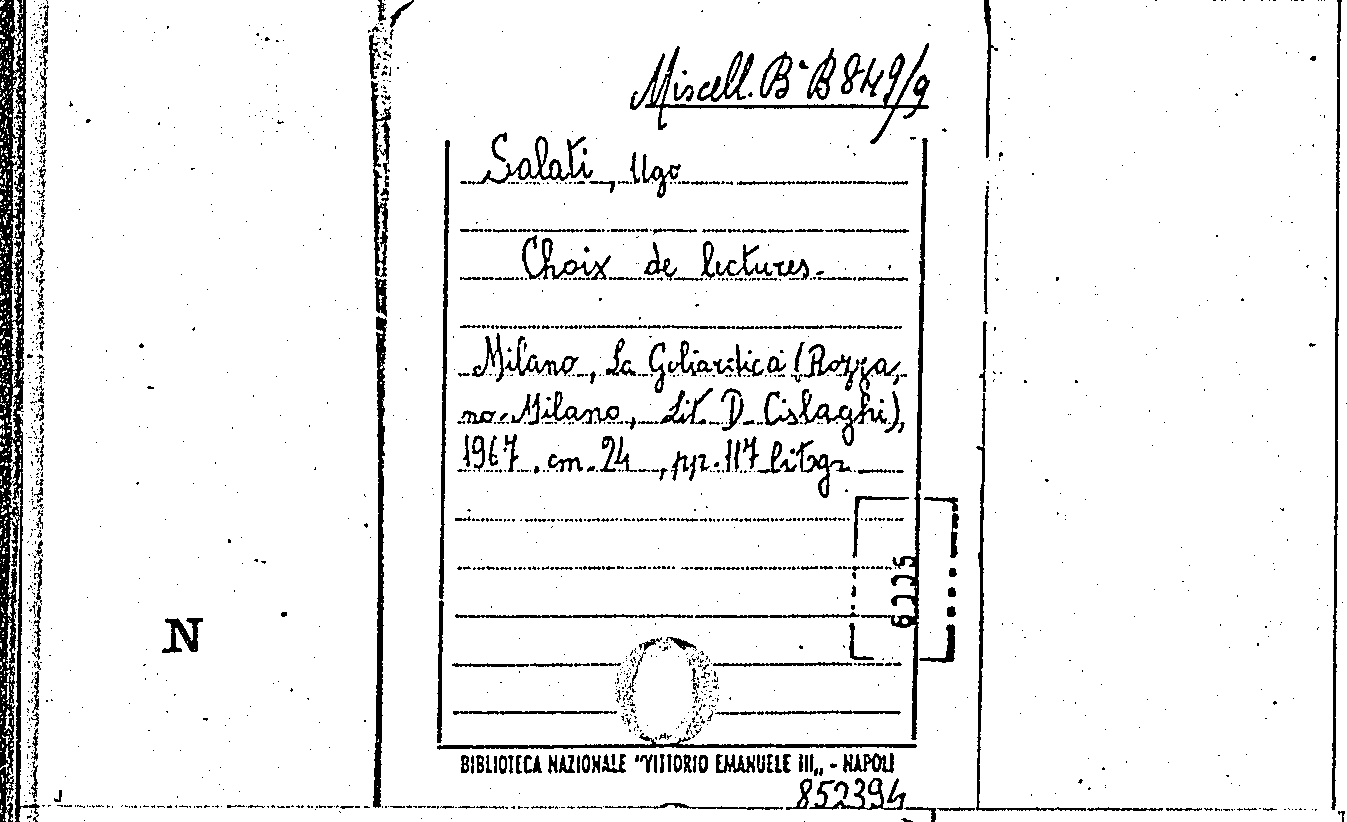 Miscell. B. B 849/9
Salati, Ugo
Choix de lectures.
Milano, La Goliardica (Rozza,
no-Milano, Lit. D. Cislaghi),
1967, cm. 24, pp. 117 litogr.
N
BIBLIOTECA NAZIONALE "VITTORIO EMANUELE III„ - NAPOLI
852394